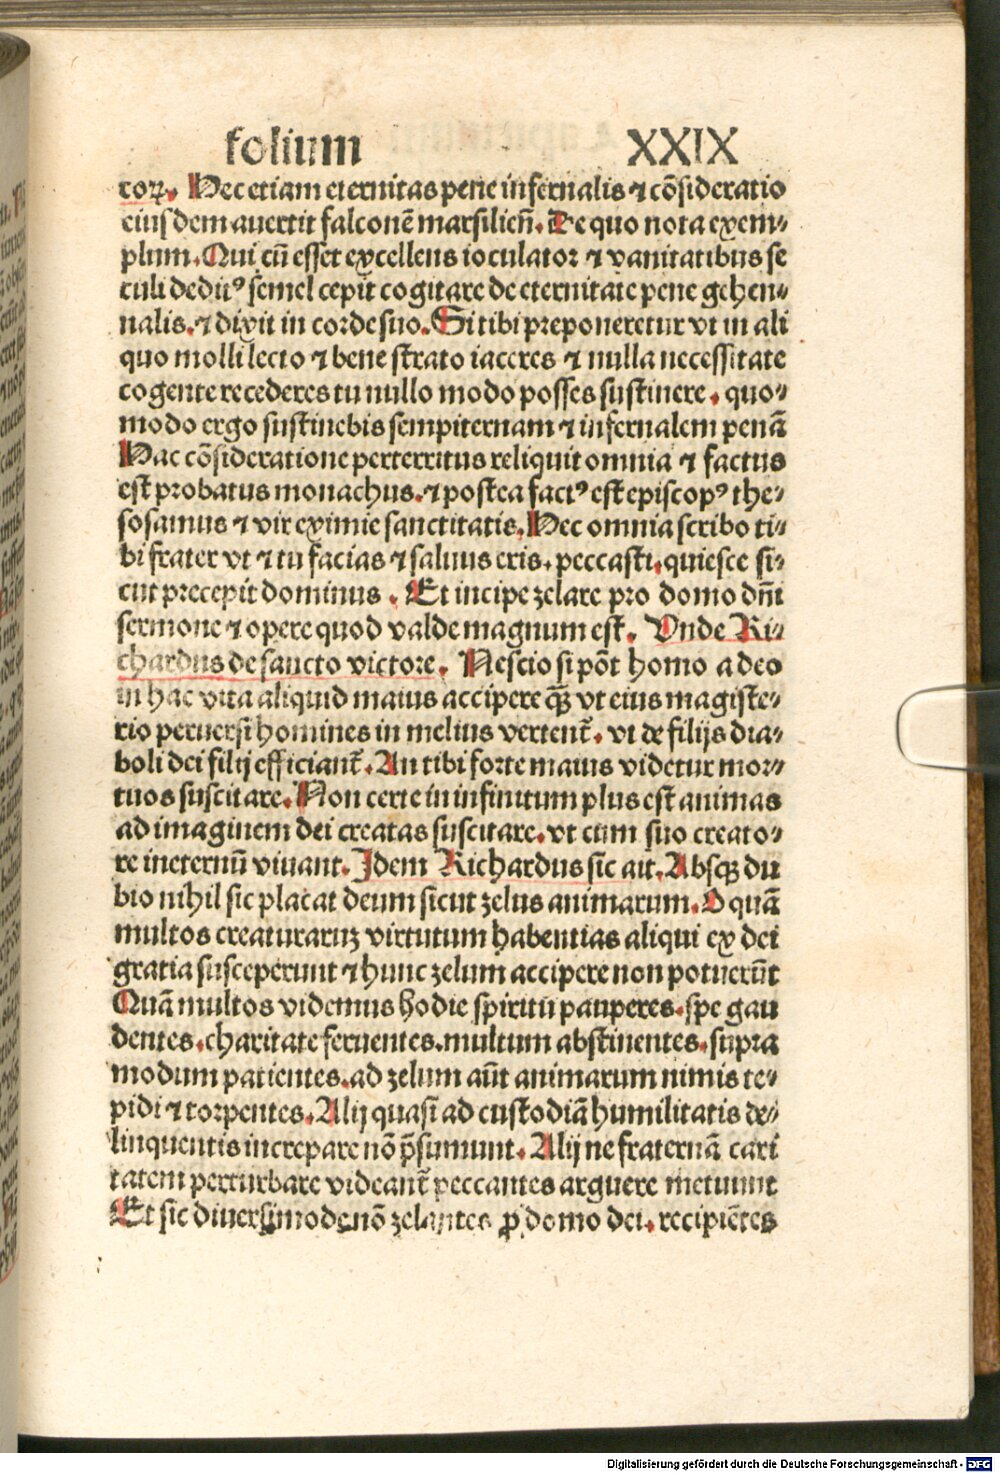 folium XXIX
toꝝ. Hec etiam eternitas pene infernalis ⁊ cõsideratio
eiusdem auertit falconẽ marsilieñ. De quo nota exem⸗
plum. Qui cũ esset excellens ioculator ⁊ vanitatibus se
culi deditꝰ semel cepit cogitare de eternitate pene gehen⸗
nalis. ⁊ dixit in corde suo. Si tibi preponeretur vt in ali
quo molli lecto ⁊ bene strato iaceres ⁊ nulla necessitate
cogente recederes tu nullo modo posses sustinere. quo⸗
modo ergo sustinebis sempiternam ⁊ infernalem penã
Hac cõsideratione perterritus reliquit omnia ⁊ factus
est probatus monachus. ⁊ postea factꝰ est episcopꝰ the⸗
sosanus ⁊ vir eximie sanctitatis. Hec omnia scribo ti⸗
bi frater vt ⁊ tu facias ⁊ saluus eris. peccasti. quiesce si⸗
cut precepit dominus. Et incipe zelare pro domo dñi
sermone ⁊ opere quod valde magnum est. Vnde Ri⸗
chardus de sancto victore. Nescio si põt homo a deo
in hac vita aliquid maius accipere q̃ꝫ vt eius magiste⸗
rio peruersi homines in melius vertent̃. vt de filijs dia⸗
boli dei filij efficiant̃. An tibi forte maius videtur mor⸗
tuos suscitare. Non certe in infinitum plus est animas
ad imaginem dei creatas suscitare. vt cum suo creato⸗
re ineternũ viuant. Idem Richardus sic ait. Absqꝫ du
bio nihil sic placat deum sicut zelus animarum. O quã
multos creaturaruꝫ virtutum habentias aliqui ex dei
gratia susceperunt ⁊ hunc zelum accipere non potuerũt
Quã multos videmus hodie spiritu pauperes. spe gau
dentes. charitate feruentes. multum abstinentes. supra
modum patientes. ad zelum aũt animarum nimis te⸗
pidi ⁊ torpentes. Alij quasi ad custodiã humilitatis de⸗
linquentis increpare nõ p̃sumunt. Alij ne fraternã cari
tatem perturbare videant̃ peccantes arguere metuunt
Et sic diuersimode nõ zelantes ꝓ domo dei. recipiẽtes
Digitalisierung gefördert durch die Deutsche Forschungsgemeinschaft - DFG